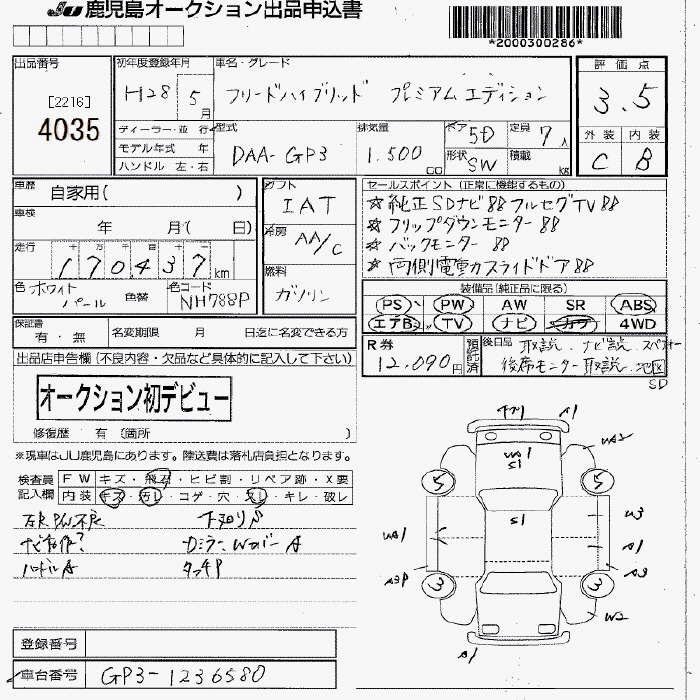 JU 鹿児島オークション出品申込書
*2000300286*
出品番号
[2216]
4035
初年度登録年月
H28 5月
車名・グレード
フリードハイブリッド プレミアムエディション
評価点
3.5
外装 内装
C B
ディーラー・並行
モデル年式 年
ハンドル 左・右
型式
DAA-GP3
排気量
1.500
cc
ドア 5D
定員 7人
形状 SW
積載 kg
車歴
自家用( )
車検
年 月( 日)
走行
十 万 千 百 十 一
170437km
色 ホワイトパール
色替
色コード
NH788P
シフト
IAT
冷房
AA/C
燃料
ガソリン
セールスポイント (正常に機能するもの)
☆ 純正SDナビ 88 フルセグTV 88
☆ フリップダウンモニター 88
☆ バックモニター 88
☆ 両側電動スライドドア 88
装備品 (純正品に限る)
PS PW AW SR ABS
エアB TV ナビ カワ 4WD
保証書
有・無
名変期限 月 日迄に名変できる方
R券
12,090円
預託済
後日品 取説、ナビ説、スペアキー
後席モニター取説、地図
SD
出品店申告欄 (不良内容・欠品など具体的に記入して下さい)
オークション初デビュー
修復歴 有 (箇所 )
※現車はJU鹿児島にあります。陸送費は落札店負担となります。
検査員
記入欄
FW キズ・飛石・ヒビ割・リペア跡・X要
内装 キズ・汚し・コゲ・穴・スレ・キレ・破レ
下廻りS
ナビ動作?
DミラーWカバーA
ハンドルA
タッチP
A1
WA2
WA1
S1
5
5
S1
W3
WA1
A1
A3P
A3
3
3
W2
A1
登録番号
車台番号
GP3-1236580